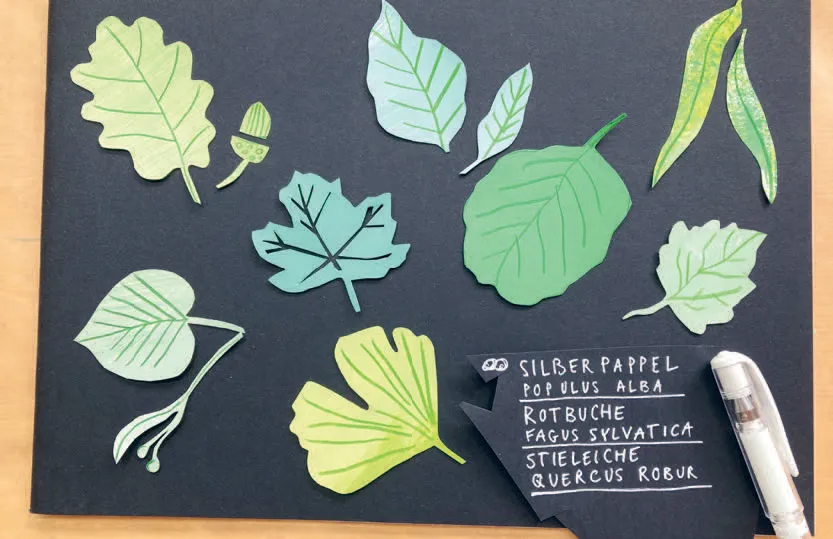 SILBERPAPPEL
POPULUS ALBA
ROTBUCHE
FAGUS SYLVATICA
STIELEICHE
QUERCUS ROBUR